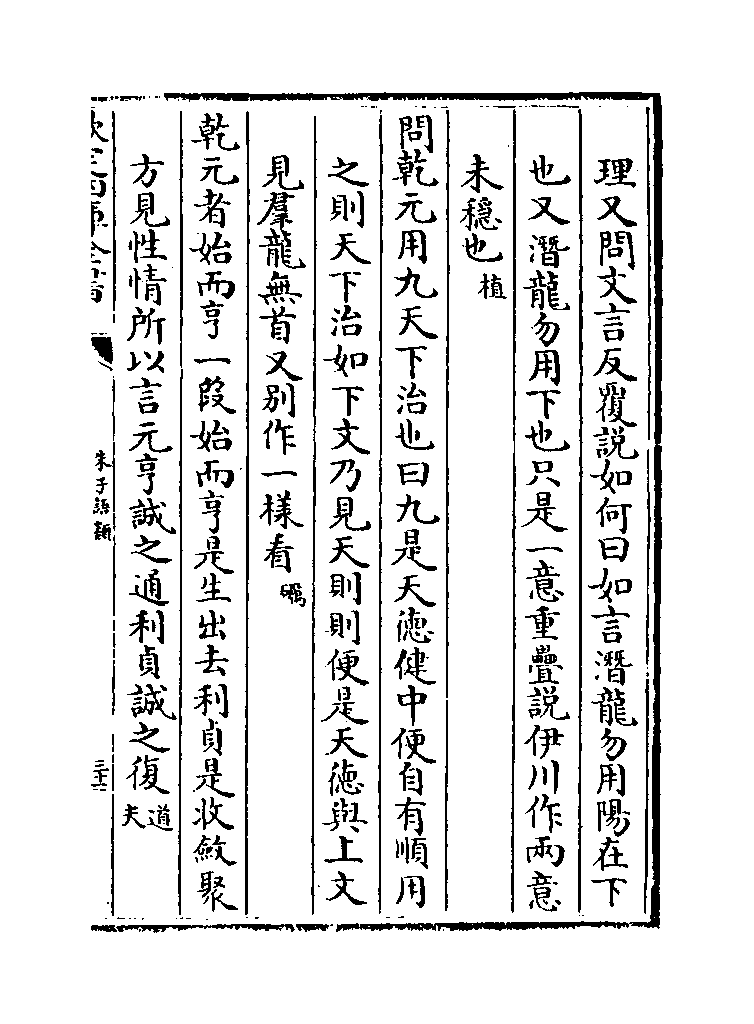 理又問文言反覆説如何曰如言潛龍勿用陽在下
也又潛龍勿用下也只是一意重疊説伊川作兩意
未穩也植
問乾元用九天下治也曰九是天德健中便自有順用
之則天下治如下文乃見天則則便是天德與上文
見羣龍無首又别作一樣看礪
乾元者始而亨一段始而亨是生出去利貞是收斂聚
方見性情所以言元亨誠之通利貞誠之復道夫
欽定四庫全書
朱子語類
三十二